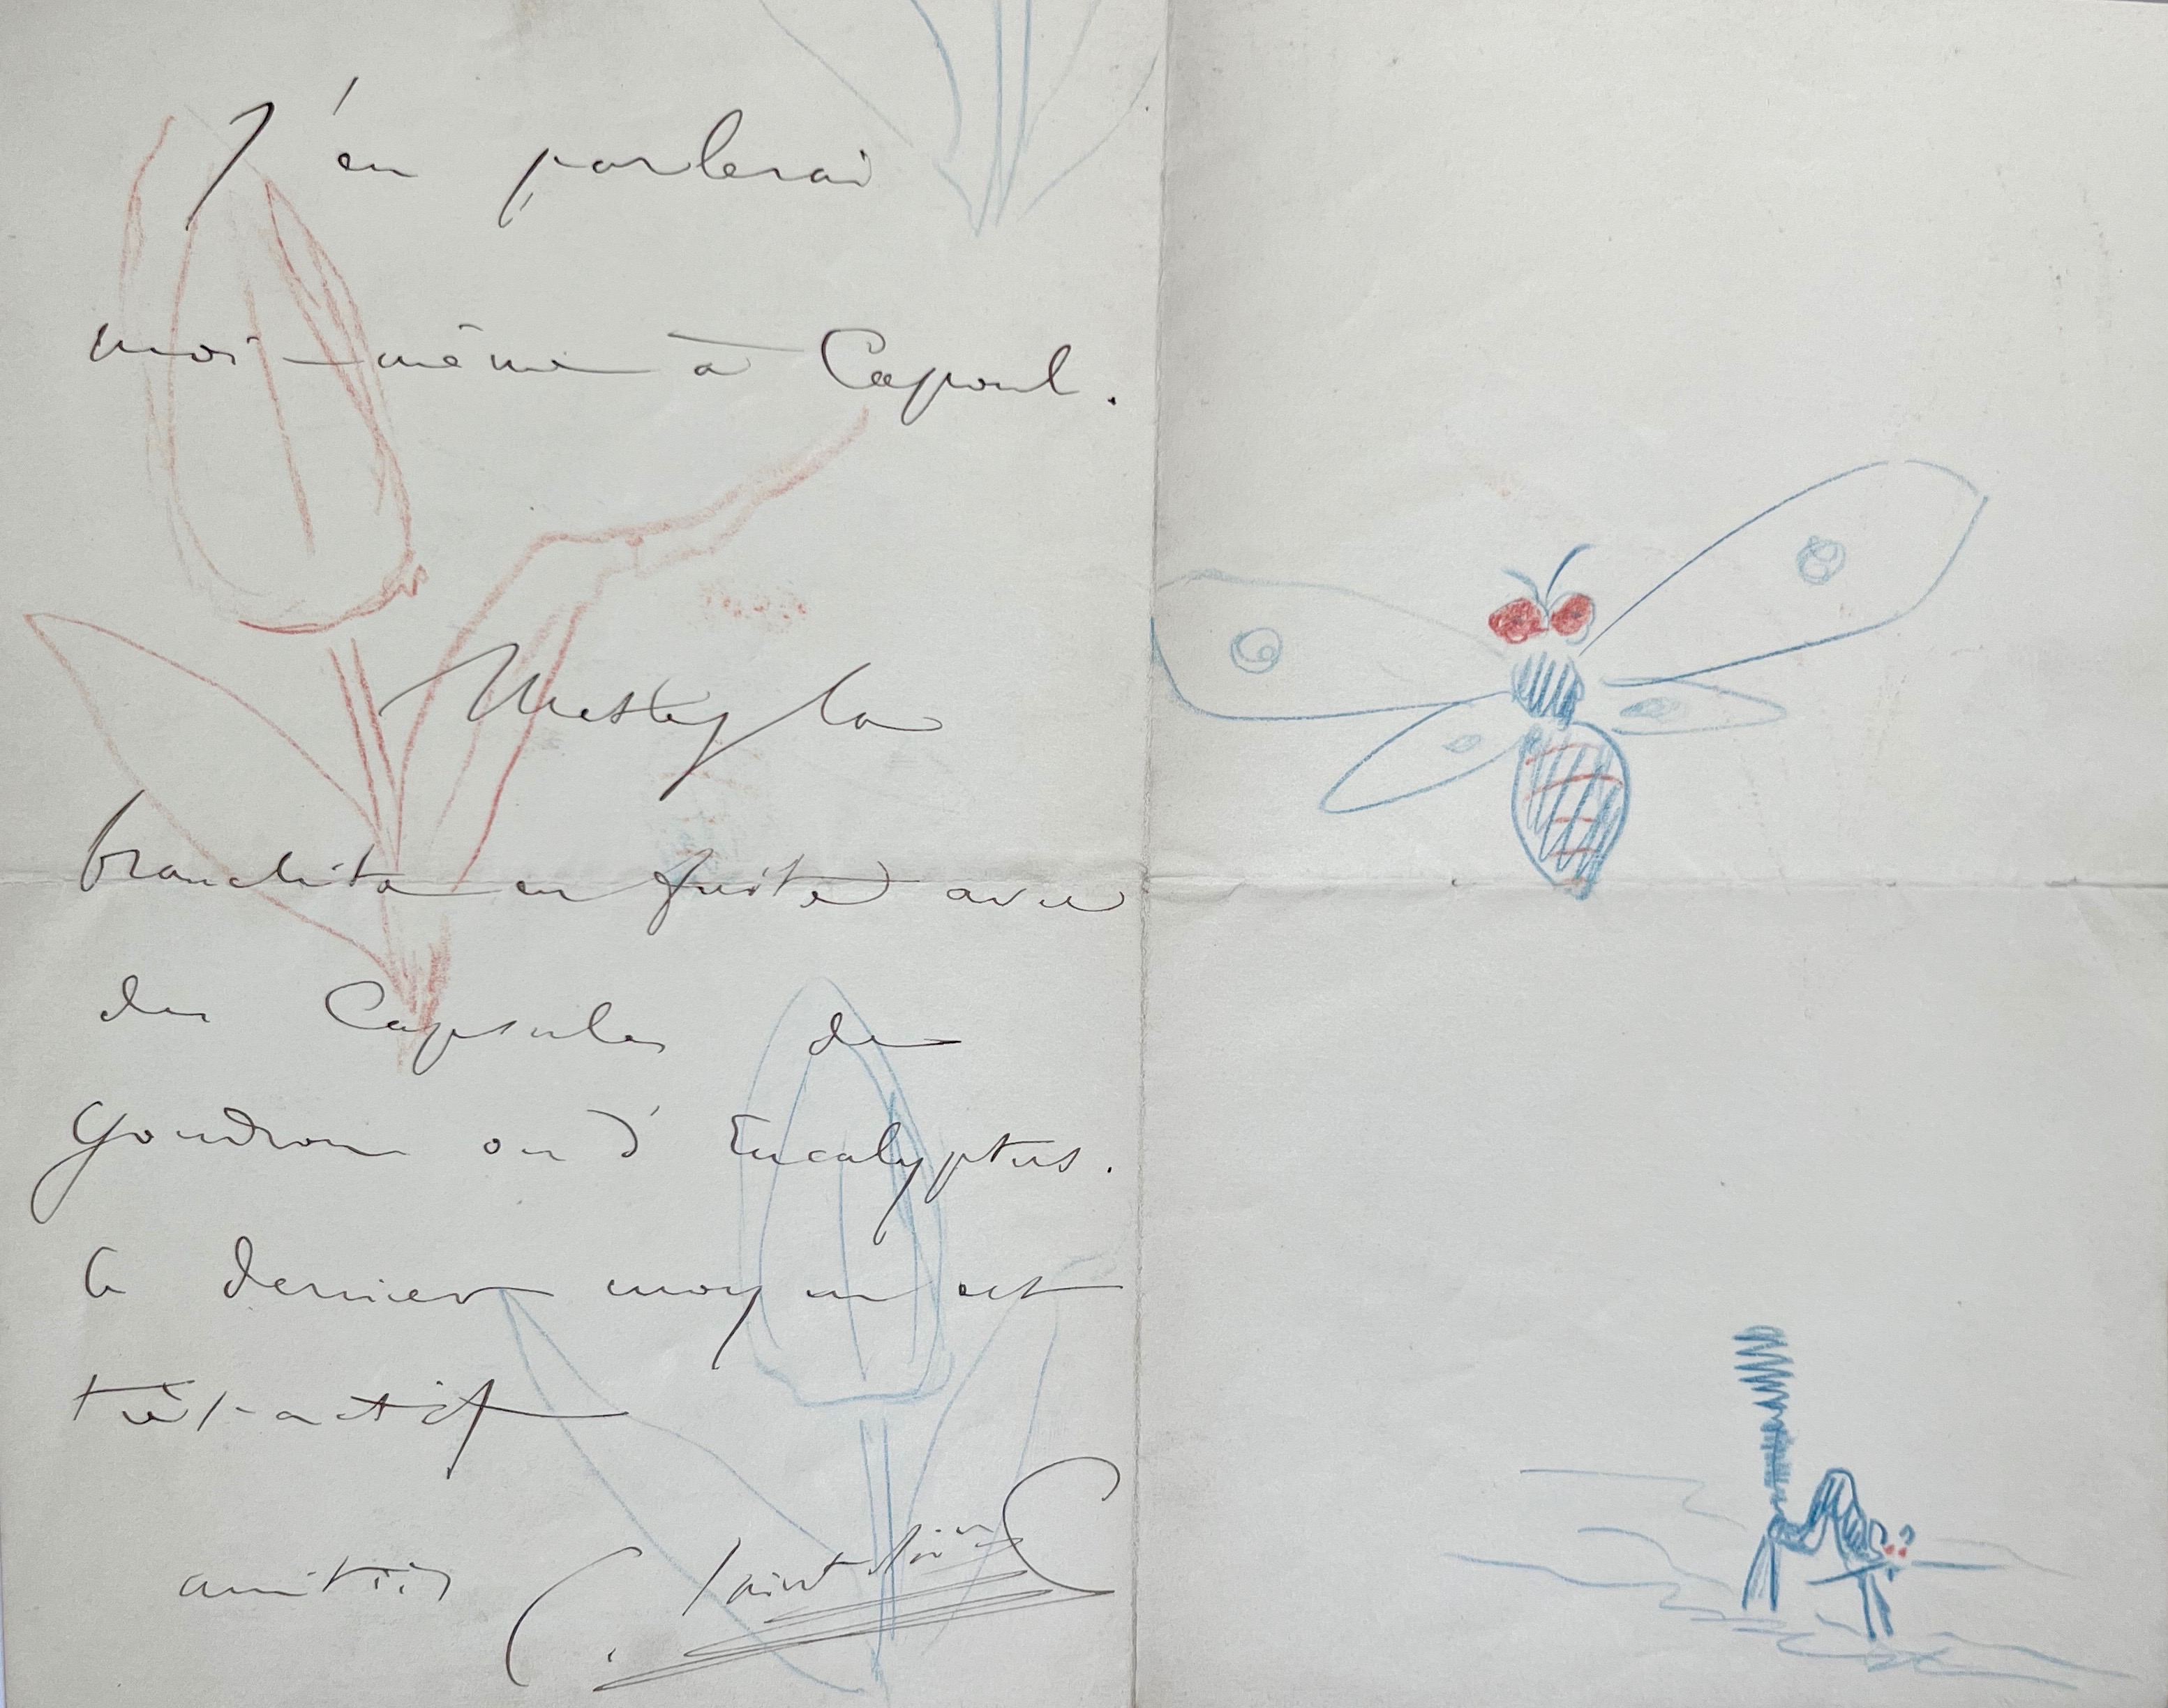 J'en parlerai
moi-même à Capoul.
Mettez la
bronchite en fuite avec
des Capsules de
Goudron ou d'Eucalyptus.
Ce dernier moyen est
très actif
amitiés C. Saint-Saëns